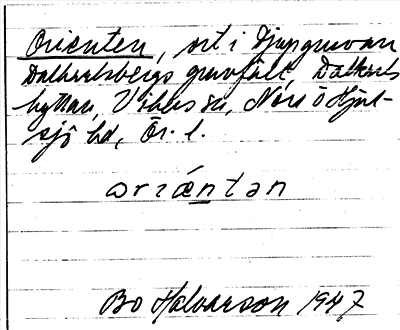 Orienten, ort i Djupgruvan
Dalkarlsbergs gruvfält, Dalkarls
hyttan, Vikers sn, Nora o Hjul-
sjö hd, Ör. l.
oriæntən
Bo Halvarson 1947